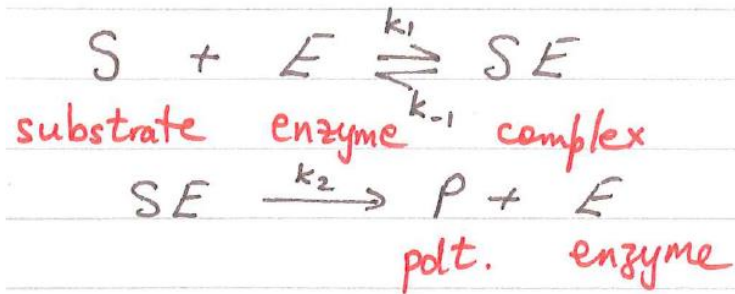 S + E k₁ ⇌ k₋₁ SE
substrate enzyme complex
SE k₂ → P + E
pdt. enzyme